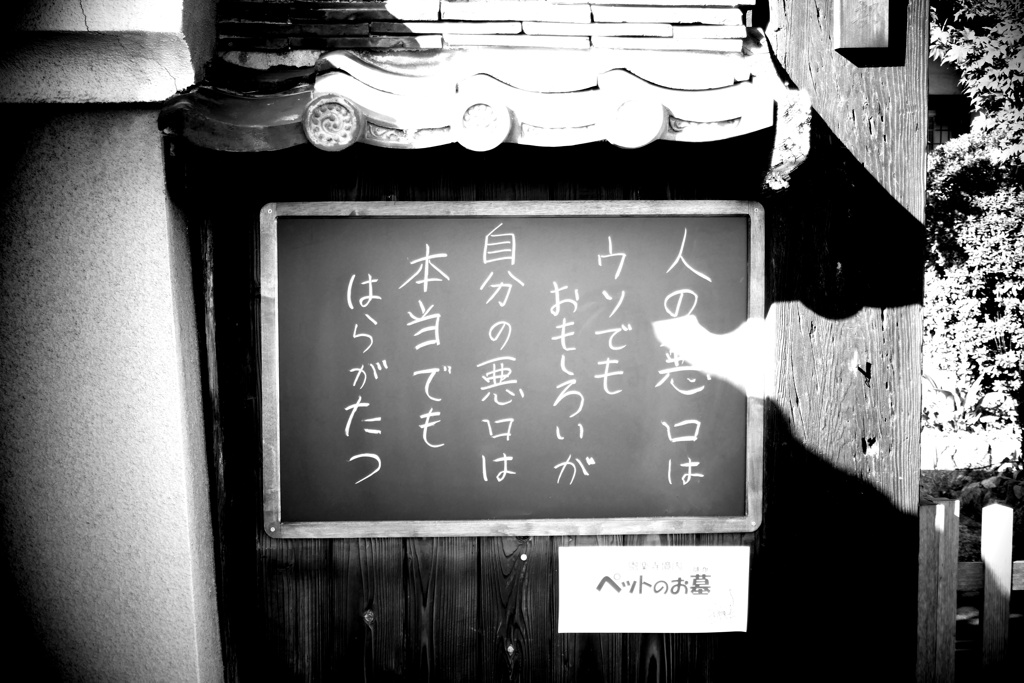 人の悪口は
ウソでも
おもしろいが
自分の悪口は
本当でも
はらがたつ
ペットのお墓